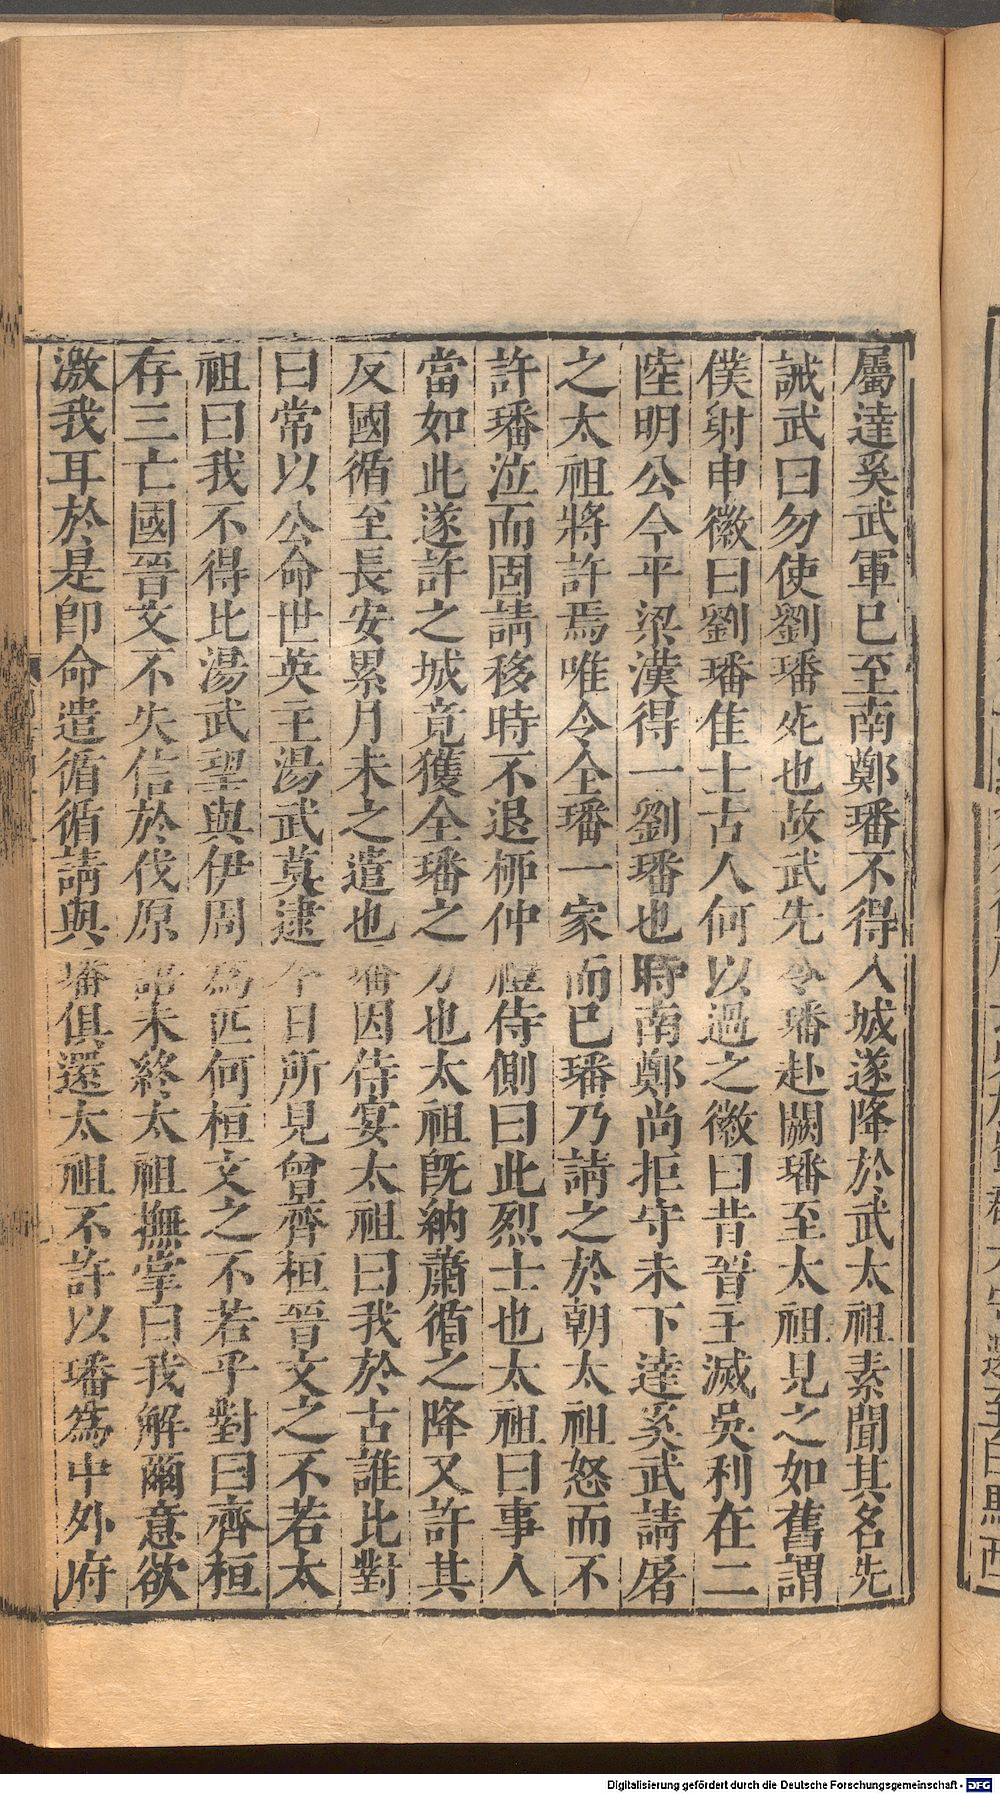 屬達奚武軍已至南鄭璠不得入城遂降於武太祖素聞其名先
誡武曰勿使劉璠死也故武先令璠赴闕璠至太祖見之如舊謂
僕射申徽曰劉璠佳士古人何以過之徽曰昔晉主滅吳利在二
陸明公今平梁漢得一劉璠也時南鄭尚拒守未下達奚武請屠
之太祖將許焉唯令全璠一家而已璠乃請之於朝太祖怒而不
許璠泣而固請移時不退栁仲禮侍側曰此烈士也太祖曰事人
當如此遂許之城竟獲全璠之力也太祖旣納蕭循之降又許其
反國循至長安累月未之遣也璠因侍宴太祖曰我於古誰比對
曰常以公命世英主湯武莫逮今日所見曾齊桓晉文之不若太
祖曰我不得比湯武望與伊周為匹何桓文之不若乎對曰齊桓
存三亡國晉文不失信於伐原語未終太祖撫掌曰我解爾意欲
激我耳於是卽命遣循循請與璠俱還太祖不許以璠為中外府
Digitalisierung gefördert durch die Deutsche Forschungsgemeinschaft - DFG